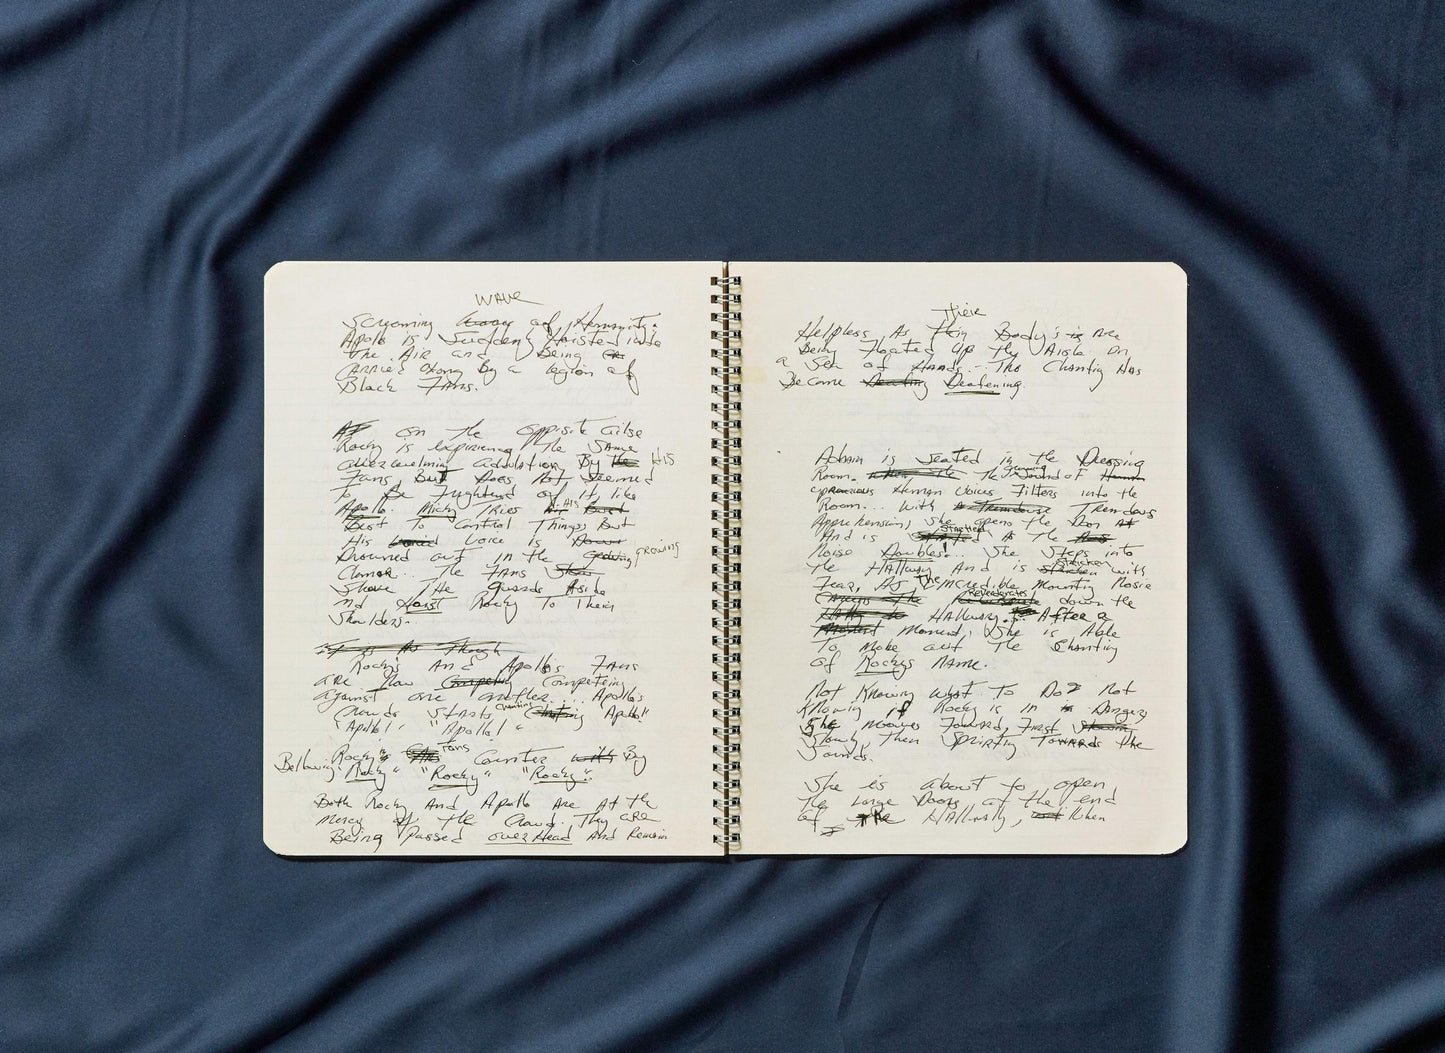 wave
Screaming of Humanity.
Apollo is Suddenly Hoisted into
the Air and Being
CARRIED Along By a legion of
Black Fans.
on the opposite side
Rocky is experiencing the SAME
overwhelming adulation By the HIS
Fans But Does Not Seemed
to Be Frightend of it, like
Apollo. Micky TRIES HIS
Best To Control Things But
His voice is
Drowned out in the growing growing
Clamor... The FANS
Shove The guards Aside
and Hoist Rocky To Their
Shoulders.
It is As Though
Rocky's And Apollo's Fans
ARE Now Competeing
against one another... Apollo's
Crowds Starts Chanting "Apollo"
"Apollo" "Apollo"
Rocky's Fans Counter with By
Bellowing "Rocky" "Rocky" "Rocky".
Both Rocky And Apollo Are At the
mercy of the Crowd. They ARE
Being Passed over Head And Remain
Their
Helpless As They Body's is Are
Being Floated Up the Aisle on
a Sea of HANDS.. The Chanting Has
Become Deafening.
Adrain is Seated in the Dressing
Room. when the The Sound of Human
Human Voices Filters into the
Room... With Tremendous
Apprehension, she opens the Door
And is Startled As the
Noise Doubles!... She Steps into
the Hallway And is Stricken with
Fear, As The Incredible Mounting Nosie
Across the Reveberates down the
HALLWAY. After a
Moment Moment, She is Able
To Make out The Chanting
of Rockys NAME.
Not Knowing What To Do? Not
Knowing if Rocky is in Danger,
She Moves Forward, First
Slowly, Then Sprinting Towards the
Sounds.
She is about to open
the Large Doors at the end
of the Hallway, When